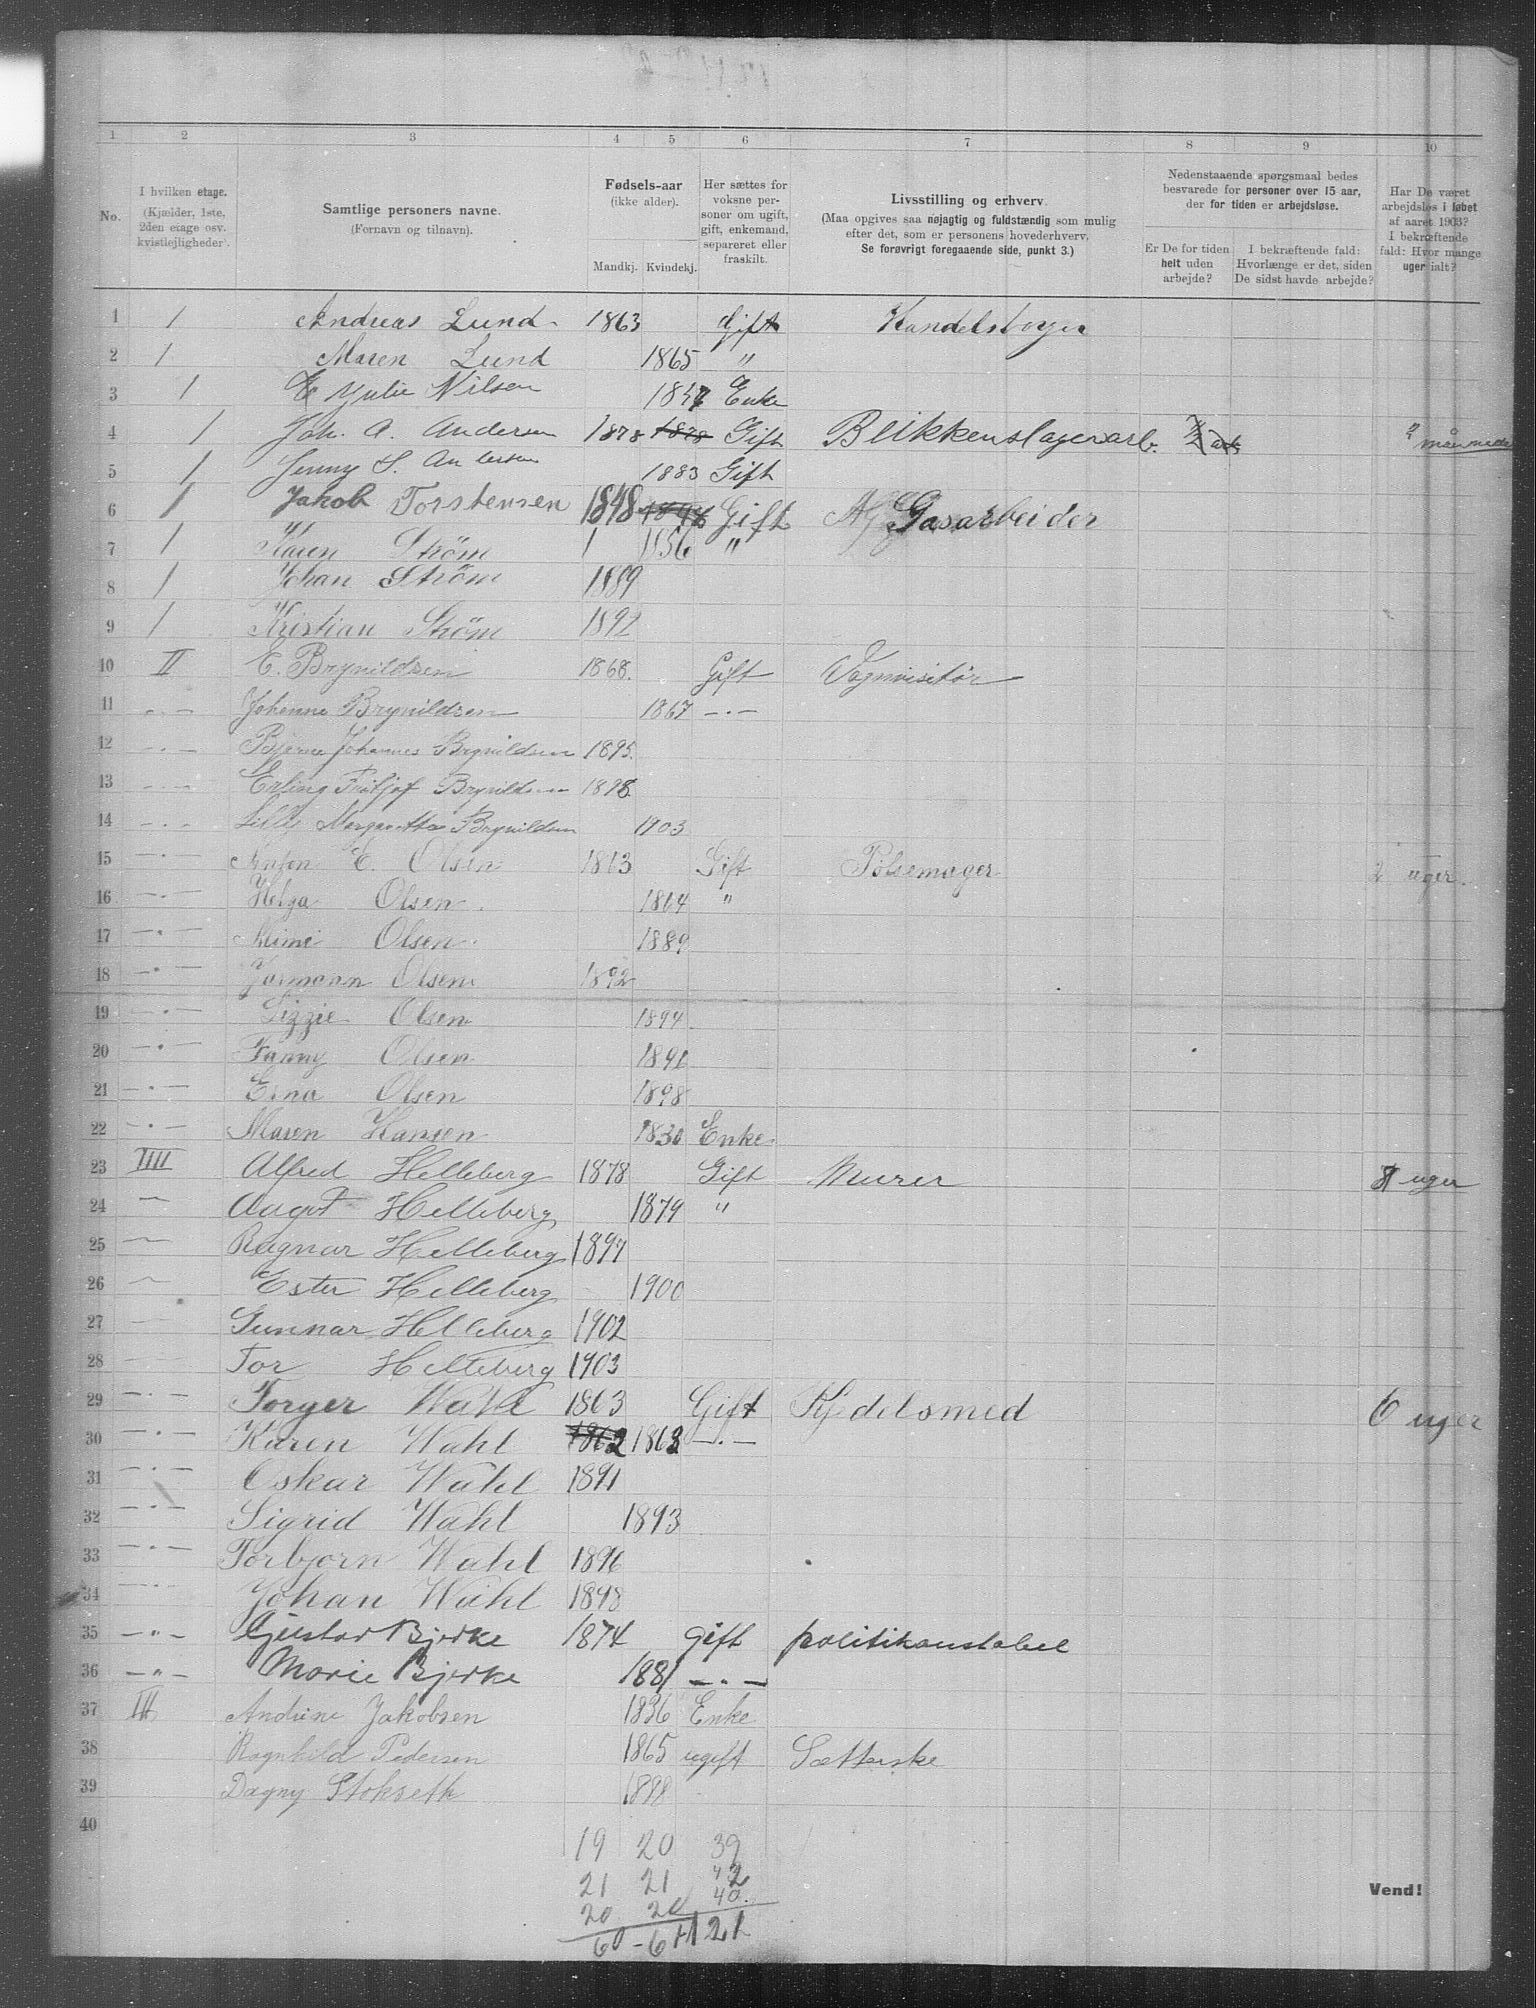 1 2 3 4 5 6 7 8 9 10
No.
I hvilken etage. (Kjælder, 1ste, 2den etage osv. kvistleiligheder).
Samtlige personers navne. (Fornavn og tilnavn).
Fødsels-aar (ikke alder). Mandkj. Kvindekj.
Her sættes for voksne personer om ugift, gift, enkemand, separeret eller fraskilt.
Livsstilling og erhverv. (Maa opgives saa nøjagtig og fuldstændig som mulig efter det, som er personens hovederhverv. Se forøvrigt foregaaende side, punkt 3.)
Nedenstaaende spørgsmaal bedes besvarede for personer over 15 aar, der for tiden er arbejdsløse.
Er De for tiden helt uden arbejde?
I bekræftende fald: Hvorlænge er det, siden De sidst havde arbejde?
Har De været arbejdsløs i løbet af aaret 1903? I bekræftende fald: Hvor mange uger ialt?
1 1 Andreas Lund 1863 Gift Handelsborger
2 1 Maren Lund 1865 "
3 1 E Julie Nilsen Enke
4 1 Joh. A. Andersen 1878 1878 Gift Blikkenslagerarb. måneder
5 1 Jenny S. Andersen 1883 Gift
6 1 Jakob Torstensen 1848 1848 Gift Gasarbeider
7 1 Karen Strøm 1 1856 "
8 1 Johan Strøm 1889
9 1 Kristian Strøm 1892
10 II E. Brynildsen 1868. Gift Vognvisitør
11 -.- Johanne Brynildsen 1867 -.-
12 -.- Bjarne Johannes Brynildsen 1895.
13 -.- Erling Fritjof Brynildsen 1898
14 -.- Lilly Margarethe Brynildsen 1903
15 -.- Anton E. Olsen 1863 Gift Pølsemager 2 uger.
16 -.- Helga Olsen. 1864 "
17 -.- Mimi Olsen. 1889
18 -.- Jarmann Olsen 1892
19 -.- Lizzie Olsen 1894
20 -.- Fanny Olsen 1891
21 -.- Erna Olsen 1898
22 -.- Maren Hansen 1830 Enke
23 IIII Alfred Helleberg 1878 Gift Murer 8 uger
24 — Aagot Helleberg 1879 "
25 — Ragnar Helleberg 1897
26 — Ester Helleberg 1900
27 — Gunnar Helleberg 1902
28 — Tor Helleberg 1903
29 -.- Torger Wahl 1863 Gift Kjedelsmed 6 uger
30 -.- Karen Wahl 1862 1863 -.-
31 -.- Oskar Wahl 1891
32 -.- Sigrid Wahl 1893
33 -.- Torbjorn Wahl 1896
34 -.- Johan Wahl 1898
35 -"- Gustav Bjerke 1874 gift politikonstabel
36 -"- Marie Bjerke 1881 -.-
37 III Andrine Jakobsen 1836 Enke
38 Ragnhild Pedersen 1865 ugift Sætterske
39 Dagny Stokseth 1898
40
19 20 39
21 21 42
20 20 40.
60 - 61 121
Vend!